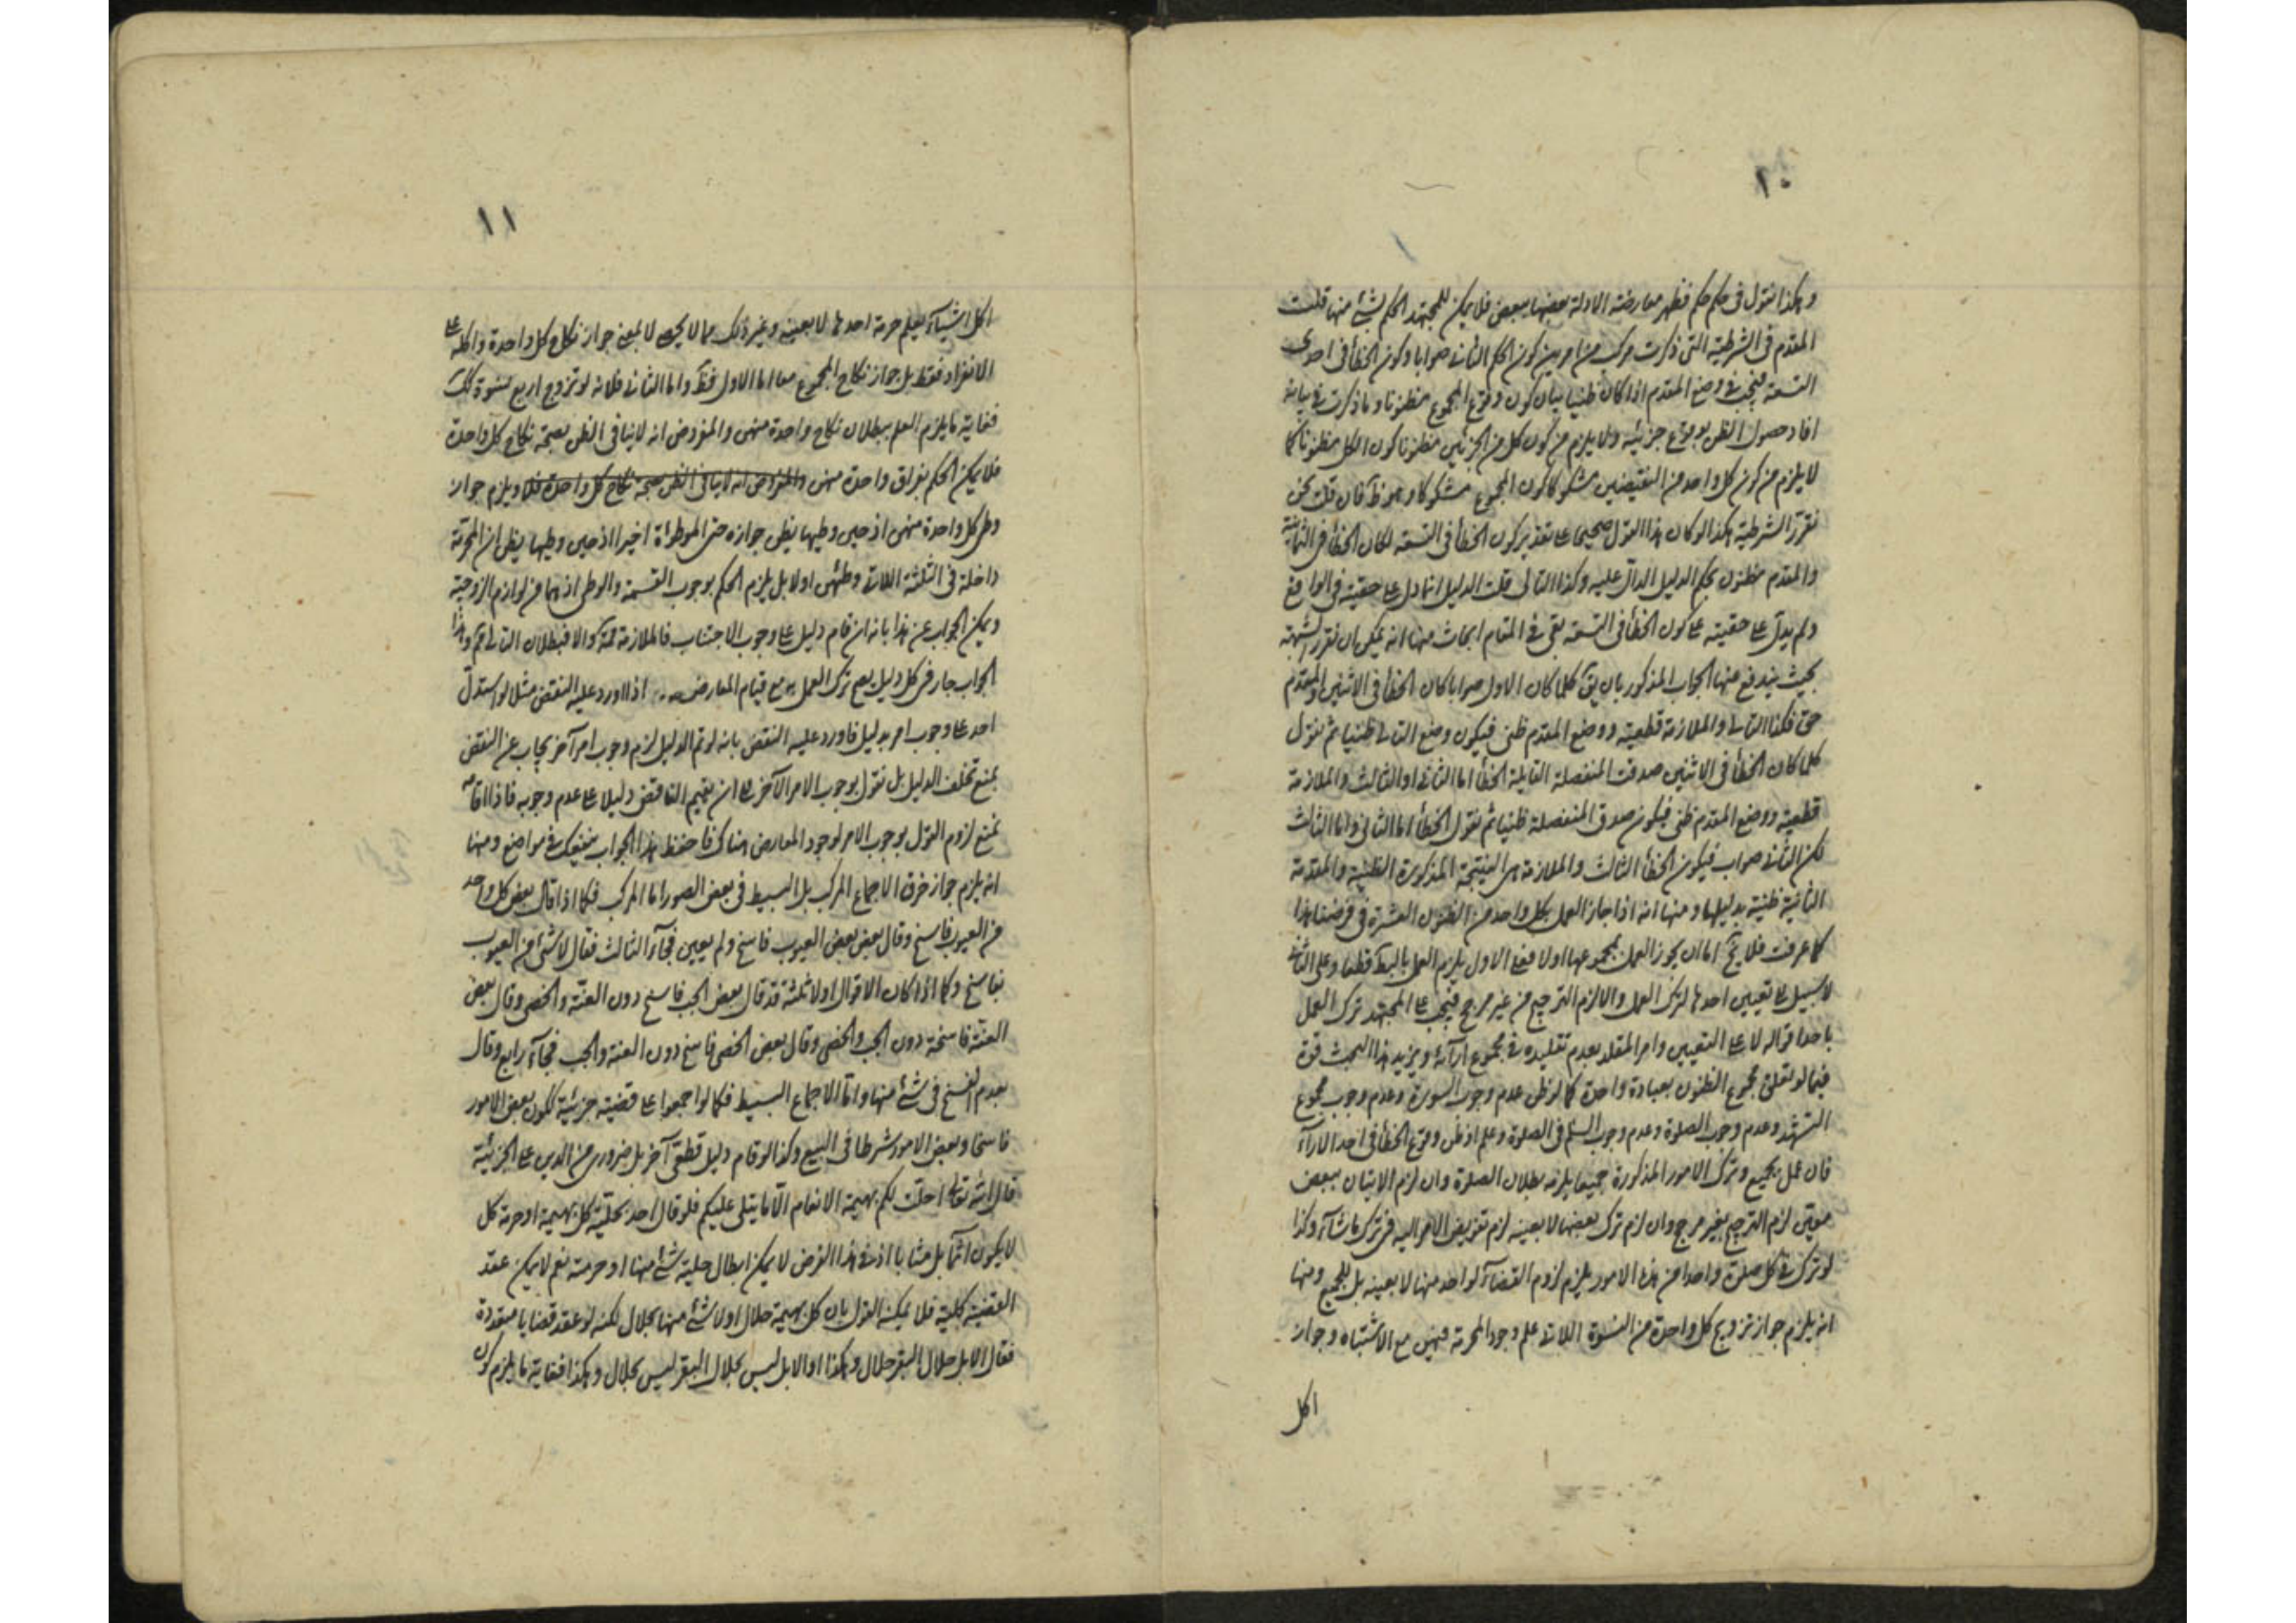 ١٠
وهكذا نقول فى حكم حكم فظهر معارضة الادلة بعضها ببعض فلا يمكن للمجتهد الحكم بشئ منها قلت
المقدم فى الشرطية التى ذكرت مركب من امرين كون الحكم الثانى صوابا وكون الخطأ فى احدى
التسعة فيجب فى وضع المقدم اذا كان ظنيا بيان كون وقوع المجموع مظنونا وما ذكرت فى بيانه
افاد حصول الظن بوقوع جزئيه ولا يلزم من كون كل من الجزئين مظنونا كون الكل مظنونا كما
لا يلزم من كون كل واحد من النقيضين مشكوكا كون المجموع مشكوكا وهو ظ فان قلت نحن
نقرر الشرطية هكذا لو كان هذا القول صحيحا على تقدير كون الخطأ فى التسعة لكان الخطأ فى الثمانية
والمقدم مظنون بحكم الدليل الدال عليه وكذا التالى قلت الدليل انما دل على حقيته فى الواقع
ولم يدل على حقيته على كون الخطأ فى التسعة بقى فى المقام ابحاث منها انه يمكن ان نقرر الشبهة
بحيث يندفع منها الجواب المذكور بان يق كلما كان الاول صوابا كان الخطأ فى الاثنين والمقدم
حق فكذا التالى والملازمة قطعية ووضع المقدم ظنى فيكون وضع التالى ظنيا ثم نقول
كلما كان الخطأ فى الاثنين صدقت المنفصلة القايلة الخطأ اما الثانى او الثالث والملازمة
قطعية ووضع المقدم ظنى فيكون صدق المنفصلة ظنيا ثم نقول الخطأ اما الثانى واما الثالث
لكن الثانى صواب فيكون الخطأ الثالث والملازمة هى النتيجة المذكورة الظنية والمقدمة
الثانية ظنية بدليلها ومنها انه اذا جاز العمل بكل واحد من الظنون العشرة فى فرضنا هذا
كما عرفت فلا يخ اما ان يجوز العمل بمجموعها او لا فعلى الاول يلزم العمل بالبط قطعا وعلى الثانى
لا سبيل الى تعيين احدها لترك العمل والا لزم الترجيح من غير مرجح فيجب على المجتهد ترك العمل
باحد اقواله لا على التعيين وامر المقلد بعدم تقليده فى مجموع ارائه ويزيد هذا البحث قوة
فيما لو تعلق مجموع الظنون بعبادة واحدة كما لو ظن عدم وجوب السورة وعدم وجوب مجموع
التشهد وعدم وجوب الصلوة وعدم وجوب السلم فى الصلوة وعلم او ظن وقوع الخطأ فى احد الاراء
فان عمل بجميع وترك الامور المذكورة جميعا يلزمه بطلان الصلوة وان لزم الاتيان ببعض
معين لزم الترجيح بغير مرجح وان لزم ترك بعضها لا بعينه لزم تفويض الامر اليه فى ترك ما شاء وكذا
لو ترك فى كل صلوة واحدا من هذه الامور يلزم لزوم القضاء لواحد منها لا بعينه بل للجميع ومنها
انه يلزم جواز تزويج كل واحدة من النسوة اللاتى علم وجود المحرمة فيهن مع الاشتباه وجواز
اكل
١١
اكل اشياء يعلم حرمة احدها لا بعينه وغير ذلك مما لا يحصى لا بمعنى جواز نكاح كل واحدة واكله على
الانفراد فقط بل جواز نكاح المجموع معا اما الاول فظ واما الثانى فلانه لو تزوج اربع نسوة كك
فغاية ما يلزم العلم ببطلان نكاح واحدة منهن والمفروض انه لا ينافى الظن بصحة نكاح كل واحدة
فلا يمكن الحكم بفراق واحدة منهن والمفروض انه لا ينافى الظن بصحة نكاح كل واحدة فلا ويلزم جواز
وطى كل واحدة منهن اذ حين وطيها يظن جوازه حتى الموطوأة اخيرا اذ حين وطيها يظن ان المحرمة
داخلة فى الثلثة اللاتى وطئهن اولا بل يلزم الحكم بوجوب القسمة والوطى اذ هما من لوازم الزوجية
ويمكن الجواب عن هذا بانه ان قام دليل على وجوب الاجتناب فالملازمة والا فبطلان التالى مم وهذا
الجواب جار فى كل دليل يعم ترك العمل به مع قيام المعارض اذا اورد عليه النقض مثلا لو استدل
احد على وجوب امر بدليل فاورد عليه النقض بانه لو تم الدليل لزم وجوب امر آخر يجاب عن النقض
بمنع تخلف الدليل بل نقول بوجوب الامر الآخر الى ان يقيم الناقض دليلا على عدم وجوبه فاذا اقامه
نمنع لزوم القول بوجوب الامر لوجود المعارض هناك فاحفظ هذا الجواب ينفعك فى مواضع ومنها
انه يلزم جواز خرق الاجماع المركب بل البسيط فى بعض الصور اما المركب فكما اذا قال بعض كل واحد
من العيوب فاسخ وقال بعض بعض العيوب فاسخ ولم يعين فجاء الثالث فقال لا شئ من العيوب
بفاسخ وكما اذا كان الاقوال اولا ثلثة قد قال بعض الجب فاسخ دون العنة والخصى وقال بعض
العنة فاسخة دون الجب والخصى وقال بعض الخصى فاسخ دون العنة والجب فجاء رابع وقال
بعدم الفسخ فى شئ منها واما الاجماع البسيط فكما لو اجمعوا على قضية جزئية ككون بعض الامور
فاسخا وبعض الامور شرطا فى البيع وكذا لو قام دليل قطعى آخر بل ضرورى من الدين على الجزئية
قال الله تعالى احلت لكم بهيمة الانعام الا ما يتلى عليكم فلو قال احد بحلية كل بهيمة او حرمة كل
لا يكون آثما بل مثابا اذ فى هذا الفرض لا يمكن ابطال حلية شئ منها او حرمته نعم لا يمكن عقد
القضية كلية فلا يمكنه القول بان كل بهيمة حلال او لا شئ منها بحلال لكنه لو عقد قضايا متعددة
فقال الابل حلال البقر حلال وهكذا او الابل ليس بحلال البقر ليس بحلال وهكذا فغاية ما يلزم كون